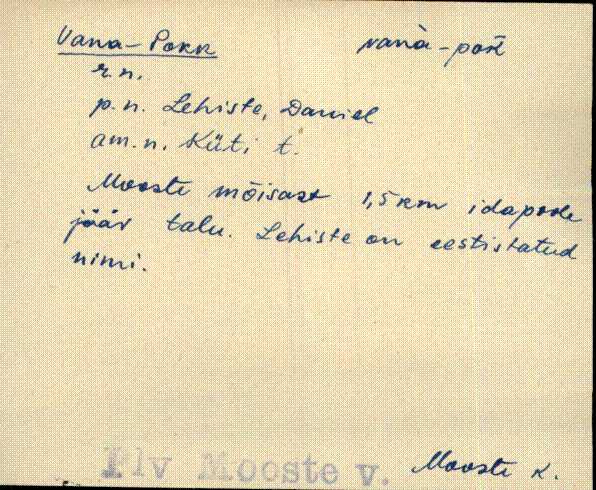 Vana-Pokk
r.n.
p.n. Lehiste, Daniel
am.n. Küti t.
Mooste mõisast 1,5 km idapoole
jääv talu. Lehiste on eestistatud
nimi.
Plv Mooste v. Mooste k.